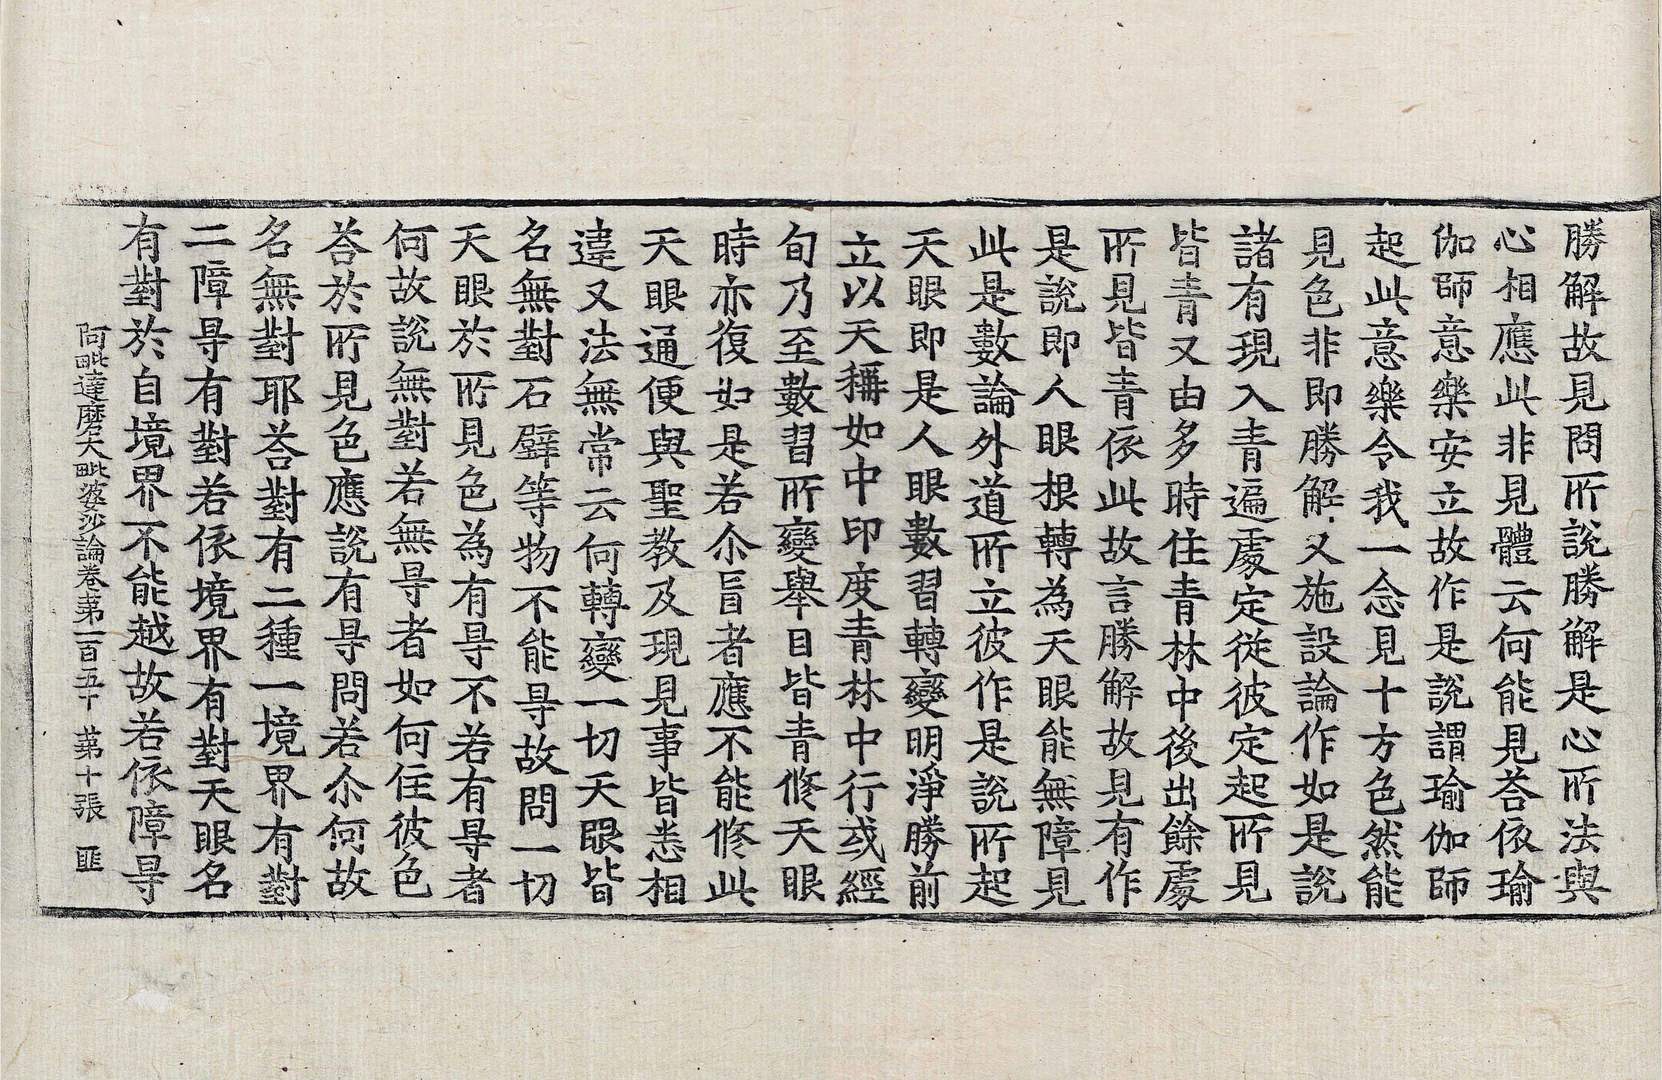 勝解故見問所說勝解是心所法與
心相應此非見體云何能見荅依瑜
伽師意樂安立故作是說謂瑜伽師
起此意樂令我一念見十方色然能
見色非即勝解又施設論作如是說
諸有現入青遍處定從彼定起所見
皆青又由多時住青林中後出餘處
所見皆青依此故言勝解故見有作
是說即人眼根轉為天眼能無障見
此是數論外道所立彼作是說所起
天眼即是人眼數習轉變明淨勝前
立以天稱如中印度青林中行或經
旬乃至數習所變舉目皆青修天眼
時亦復如是若尒盲者應不能修此
天眼通便與聖教及現見事皆悉相
違又法無常云何轉變一切天眼皆
名無對石壁等物不能㝵故問一切
天眼於所見色為有㝵不若有㝵者
何故說無對若無㝵者如何住彼色
荅於所見色應說有㝵問若尒何故
名無對耶荅對有二種一境界有對
二障㝵有對若依境界有對天眼名
有對於自境界不能越故若依障㝵
阿毗達磨大毗婆沙論卷第一百五十 第十張 匪